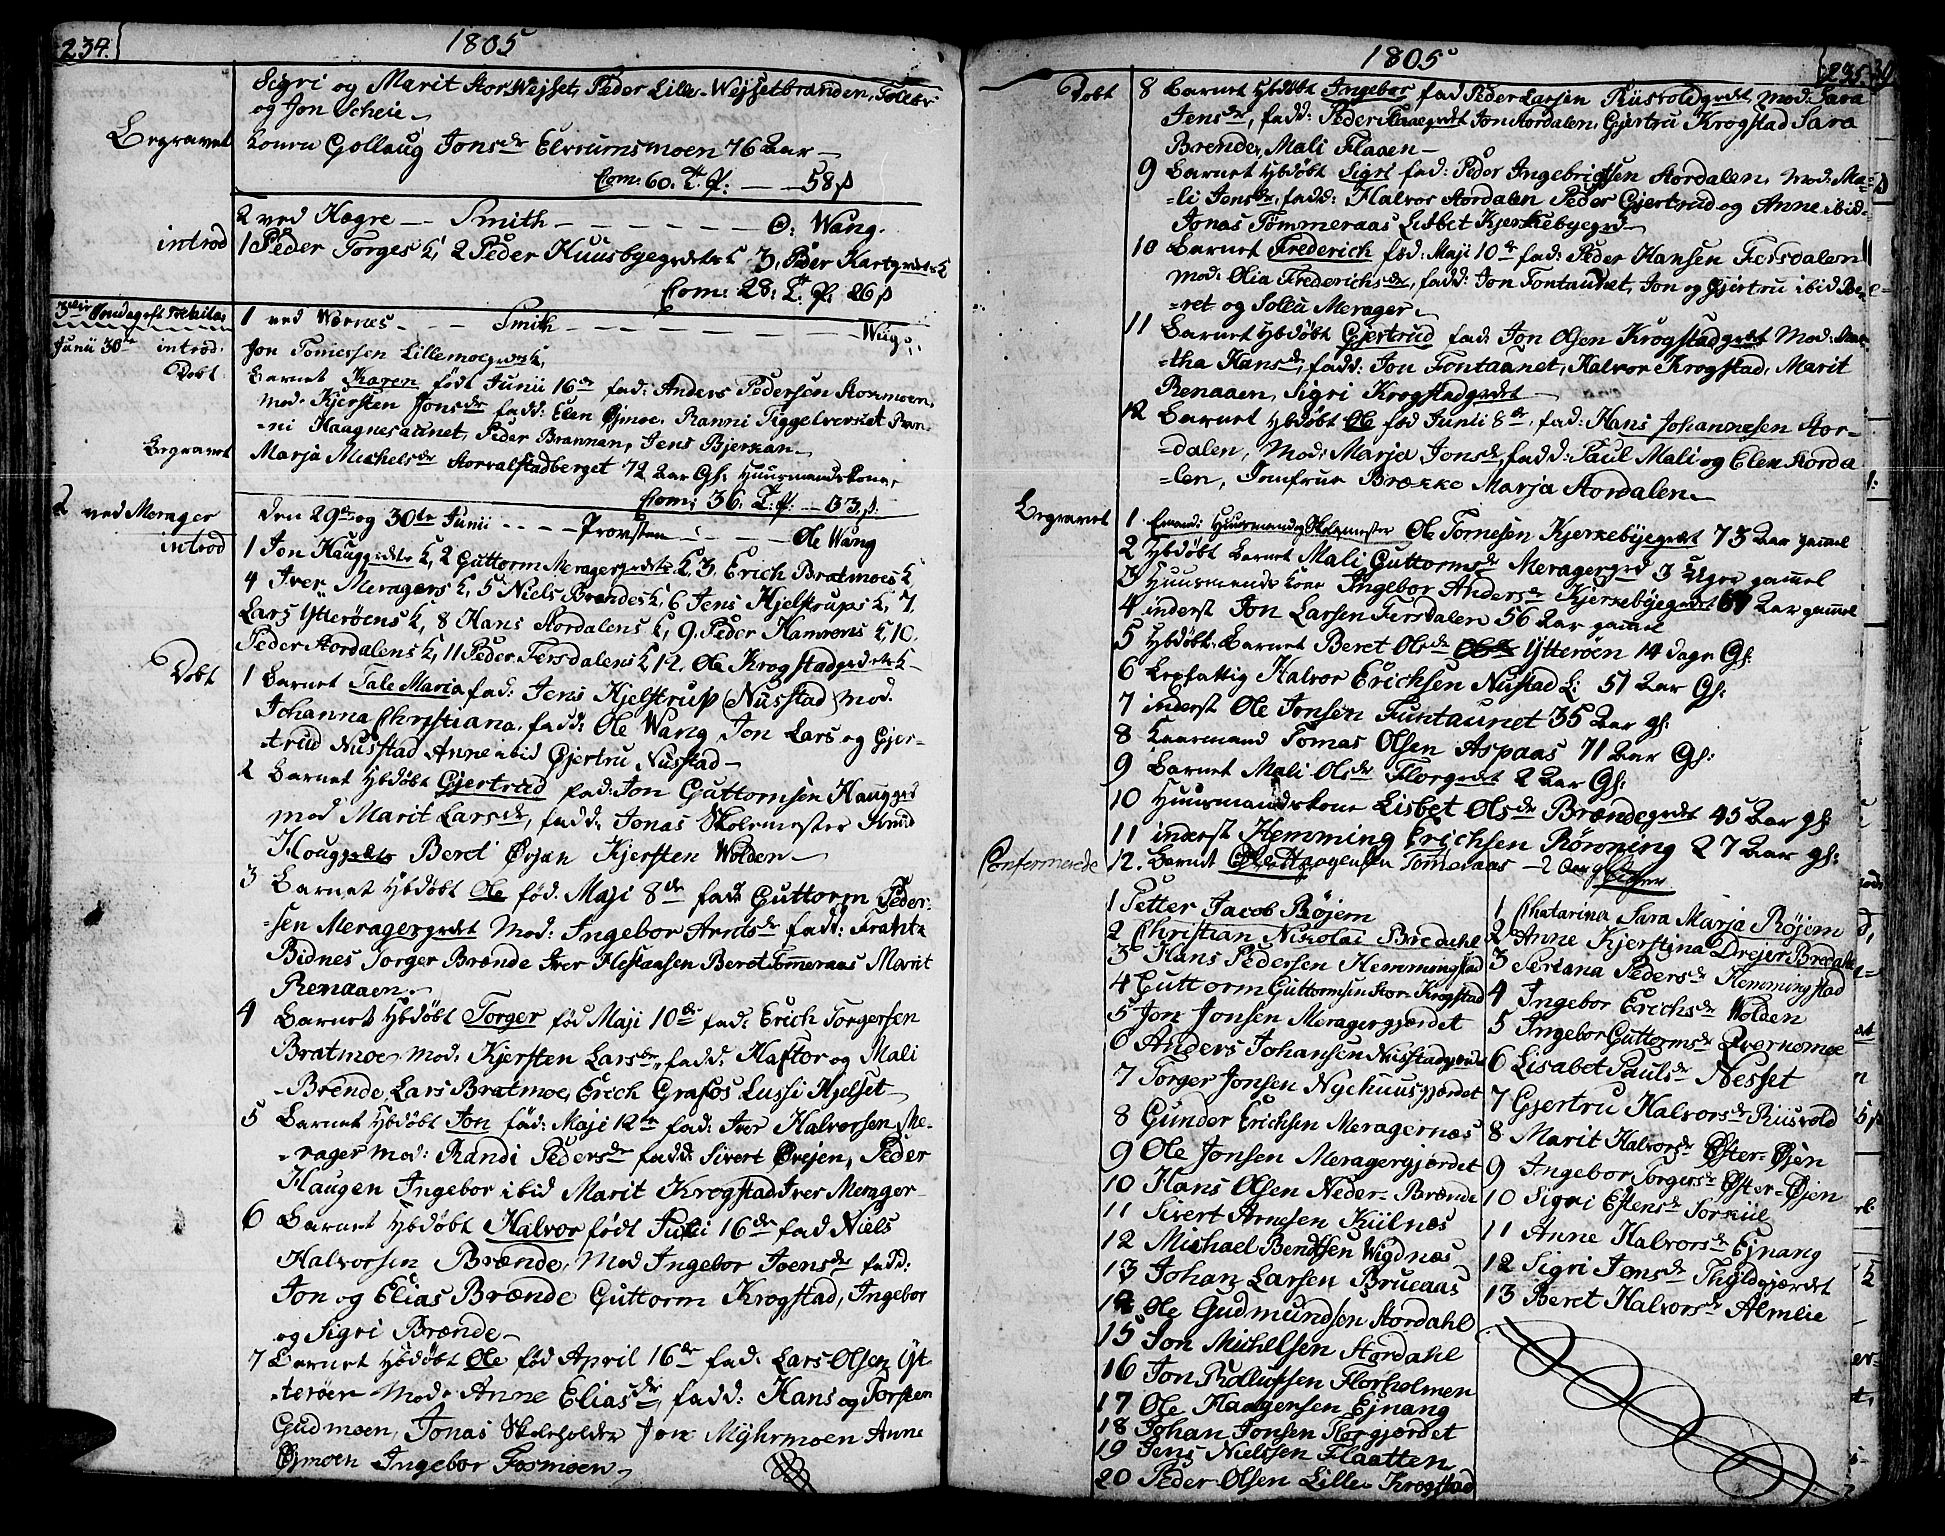 234.
1805
Sigri og Marit StorWejset, Peder Lille-Wejset
og Jon Scheie
Begravet
Konen Gollaug Jonsdr Elvrumsmoen 76 Aar
Com: 60. T. Of: 58 s
2 ved Hegre Smith O: Wang.
introd
1 Peder Torges K, 2 Peder Huusbyegrdets K 3, Peder Kartgrdets K
Com: 28: T. Of: 26 s
3die Søndag post Trinitas
1 ved Wernes Smith Wiig
Junii 30te introd.
Jon Tomessen Lillemoegrdets K,
Døbt
Barnet Karen født Junii 16de fad: Anders Pedersen Stormoen,
mod: Kjersten Jonsdr fadd: Elen Øjmoe, Ranni Tiggelverket Ran-
=ni Haagnesaunet, Peder Brannan, Jens Bjerkan
Begravet
Marja Michelsdr Storvalstadberget 72 Aar Gl: Huusmandskone,
Com: 36. T: of. 33 s.
2 ved Merager
den 29de og 30te Junii Provsten Ole Wang
introd
1 Jon Hauggrdets K, 2 Guttorm Meragergrdets K 3, Erich Bratmoes K
4 Iver Meragers K, 5 Niels Brendes K, 6 Jens Hjelstrups K, 7.
Lars Ytterøens K, 8 Hans Stordalens K, 9. Peder Hamrens K 10.
Peder Stordalens K, 11 Peder Fersdalens K 12. Ole Krogstadgrdets K
Døbt
1 Barnet Tale Maria fad: Jens Hjelstrup (Nusstad) mod.
Johanna Christiana, fadd: Ole Wang Jon Lars og Gjer-
=trud Nusstad Anne ibid Gjertru Nusstad
2 Barnet Hbdøbt Gjertrud fad: Jon Guttomsen Haugged
mod Marit Larsdr, fadd: Jonas Skolemester Knud
Hougjrdets Beret Ørjan Kjersten Wolden
3 Barnet Hbdøbt Ole fød. Maji 8de fad: Guttorm Peder-
=sen Meragergrdet Mod: Ingebor Arntsdr fadd: Frantz
Bidnes Torger Brænde Iver Flestansen Beret Tømmeraas Marit
Renaaen
4 Barnet Hbdøbt Torger fød Maji 10de fad: Erich Torgersen
Bratmoe, mod: Kjersten Larsdr, fadd: Haftor og Mali
Brende, Lars Bratmoe, Erich Grafos Lussi Hjelset
5 Barnet Hbdøbt Jon fød: Maji 12te fad: Iver Halvorsen Me-
=rager Mod: Randi Pedersdr fadd: Sivert Øvejen, Peder
Haugen Ingebor ibid Marit Krogstad Iver Merager
6 Barnet Hbdøbt Halvor født Juli 16de fad Niels
Halvorsen Brænde, Mod Ingebor Joensdr fadd:
Jon og Elias Brænde Guttorm Krogstad, Ingebor
og Sigri Brænde
7 Barnet Hbdøbt Ole fød April 16de fad: Lars Olsen Yt-
=terøen Mod: Anne Eliasdr, fadd: Hans og Torsten
Gudmoen, Jonas Skoleholder Jon Myhrmoen Anne
Øjmoen Ingebor Fosmoen
1805
235
Døbt
8 Barnet Hbdøbt Ingebor fad Peder Larsen Riisvoldgrdet, mod: Sara
Jensdr, fadd: Peder Flaaegrdet Jon Stordalen, Gjertru Krogstad Sara
Brende, Mali Flaaen
9 Barnet Hbdøbt Sigri fad: Peder Ingebrigtsen Stordalen, Mod: Ma-
=li Jonsdr, fadd: Halvor Stordalen Peder Gjertrud og Anne ibid
Jonas Tømmeraas Lisbet Kjerkebyegrd
10 Barnet Frederich fød: Maji 10de fad: Peder Hansen Fersdalen
mod: Olia Frederichsdr, fadd: Jon Fontaunet, Jon og Gjertru ibid Be-
=ret og Solla Merager
11 Barnet Hbdøbt Gjertrud fad: Jon Olsen Krogstadgrdet Mod: Mar-
=tha Hansdr, fadd: Jon Fontaunet, Halvor Krogstad, Marit
Renaaen, Sigri Krogstadgrdet
12 Barnet Hbdøbt Ole fød Junii 8de, fad: Hans Johannesen Stor-
=dalen, Mod: Marja Jonsdr, fadd: Paul Mali og Elen Storda
=len, Jomfrue Brække Marja Stordalen
Begravet
1. Huusmand og Skolemester Ole Tomesen Kjerkebyegrdet 73 Aar gammel
2 Hbdøbt Barnet Mali Guttormsdr Meragergrd 3 Uger gammel
3 Huusmands kone Ingebor Andersdr Kjerkebyegrdet 67 Aar gammel
4 inderst Jon Larsen Fersdalen 56 Aar gammel
5 Hbdøbt Barnet Beret Olsdr Ytterøen 14 dage Gl:
6 Lægfattig Halvor Erichsen Nustad L: 51 Aar Gl:
7 inderst Ole Jonsen Funtaunet 35 Aar gl:
8 Kaarmand Tomas Olsen Aspaas 71 Aar Gl:
9 Barnet Mali Olsdr Florgrdet 2 Aar Gl:
10 Huusmandskone Lisbet Olsdr Brændegrdet 45 Aar gl:
11 inderst Hemming Erichsen Rønning 27 Aar gl:
12. Barnet Ole Haagensen Tømeraas 2 Aar gl
Confermerede
Piger
1 Petter Jacob Røjem
2 Christian Nikolai Bredahl
3 Hans Pedersen Hemmingstad
4 Guttorm Guttormsen Stor-Krogstad
5 Jon Jonsen Meragergjordet
6 Anders Johansen Nusstadgrdet
7 Torger Jonsen Nychuusgjordet
8 Gunder Erichsen Meragernæs
9 Ole Jonsen Meragergjordet
10 Hans Olsen Neder-Brænde
11 Sivert Arnesen Kiilnæs
12 Michael Bendtsen Wigdnæs
13 Johan Larsen Brueaas
14 Ole Gudmundsen Stordahl
15 Jon Michelsen Stordahl
16 Jon Rolufsen Florholmen
17 Ole Haagensen Ejnang
18 Johan Jonsen Florgjordet
19 Jens Nielssen Flaatten
20 Peder Olsen Lille-Krogstad
1 Chatarina Sara Marja Røjem
2 Anne Kjerstina Drejer Bredahl
3 Seriana Pedersdr Hemmingstad
4 Ingebor Erichsdr Wolden
5 Ingebor Guttormsdr Qvernmoe
6 Lisabet Paulsdr Nesset
7 Gjertru Halvorsdr Riisvold
8 Marit Halvorsdr Øster-Øjen
9 Ingebor Torgersdr Øster-Øjen
10 Sigri Estensdr Sorkiil
11 Anne Halvorsdr Ejnang
12 Sigri Jensdr Thyldgjærdet
13 Beret Halvorsdr Almlie